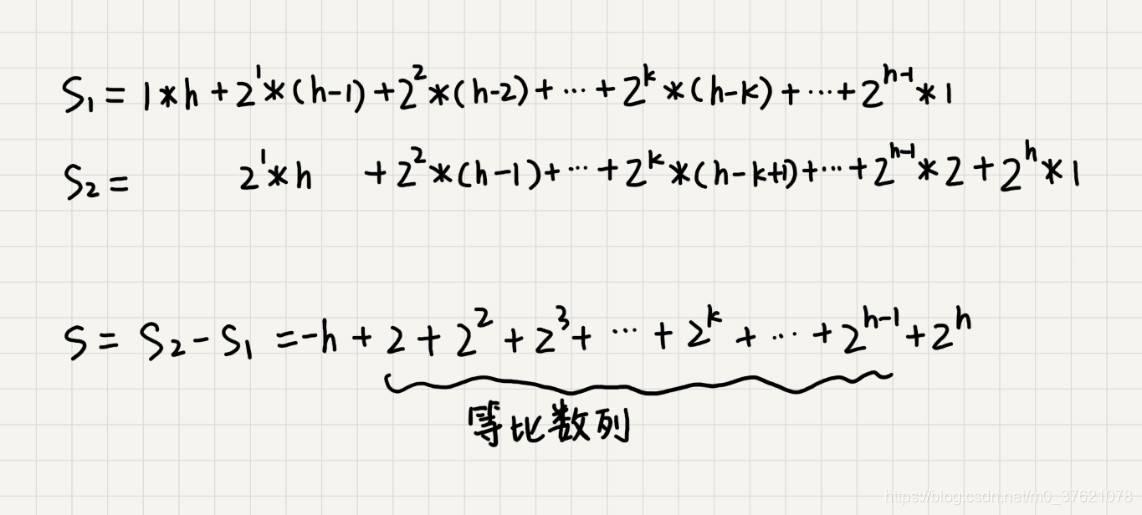 S₁ = 1*h + 2¹*(h-1) + 2²*(h-2) + ... + 2ᵏ*(h-k) + ... + 2ʰ⁻¹*1
S₂ = 2¹*h + 2²*(h-1) + ... + 2ᵏ*(h-k+1) + ... + 2ʰ⁻¹*2 + 2ʰ*1
S = S₂-S₁ = -h + 2 + 2² + 2³ + ... + 2ᵏ + ... + 2ʰ⁻¹ + 2ʰ
等比数列
https://blog.csdn.net/m0_37621078